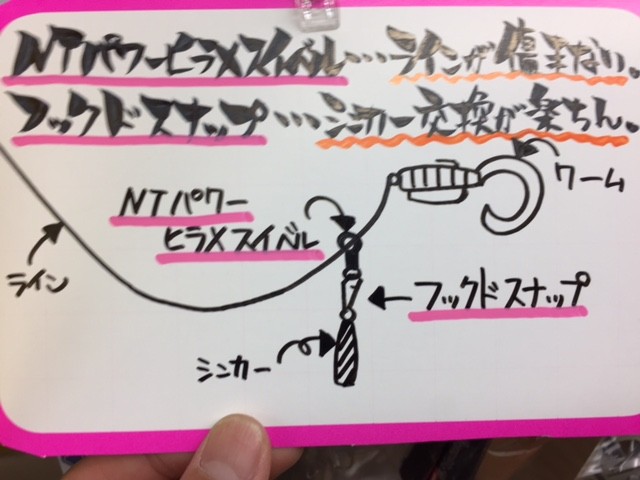 NTパワーヒラメスイベル…ラインが傷まない。
フックドスナップ…シンカー交換が楽ちん。
ワーム
NTパワー
ヒラメスイベル
ライン
フックドスナップ
シンカー